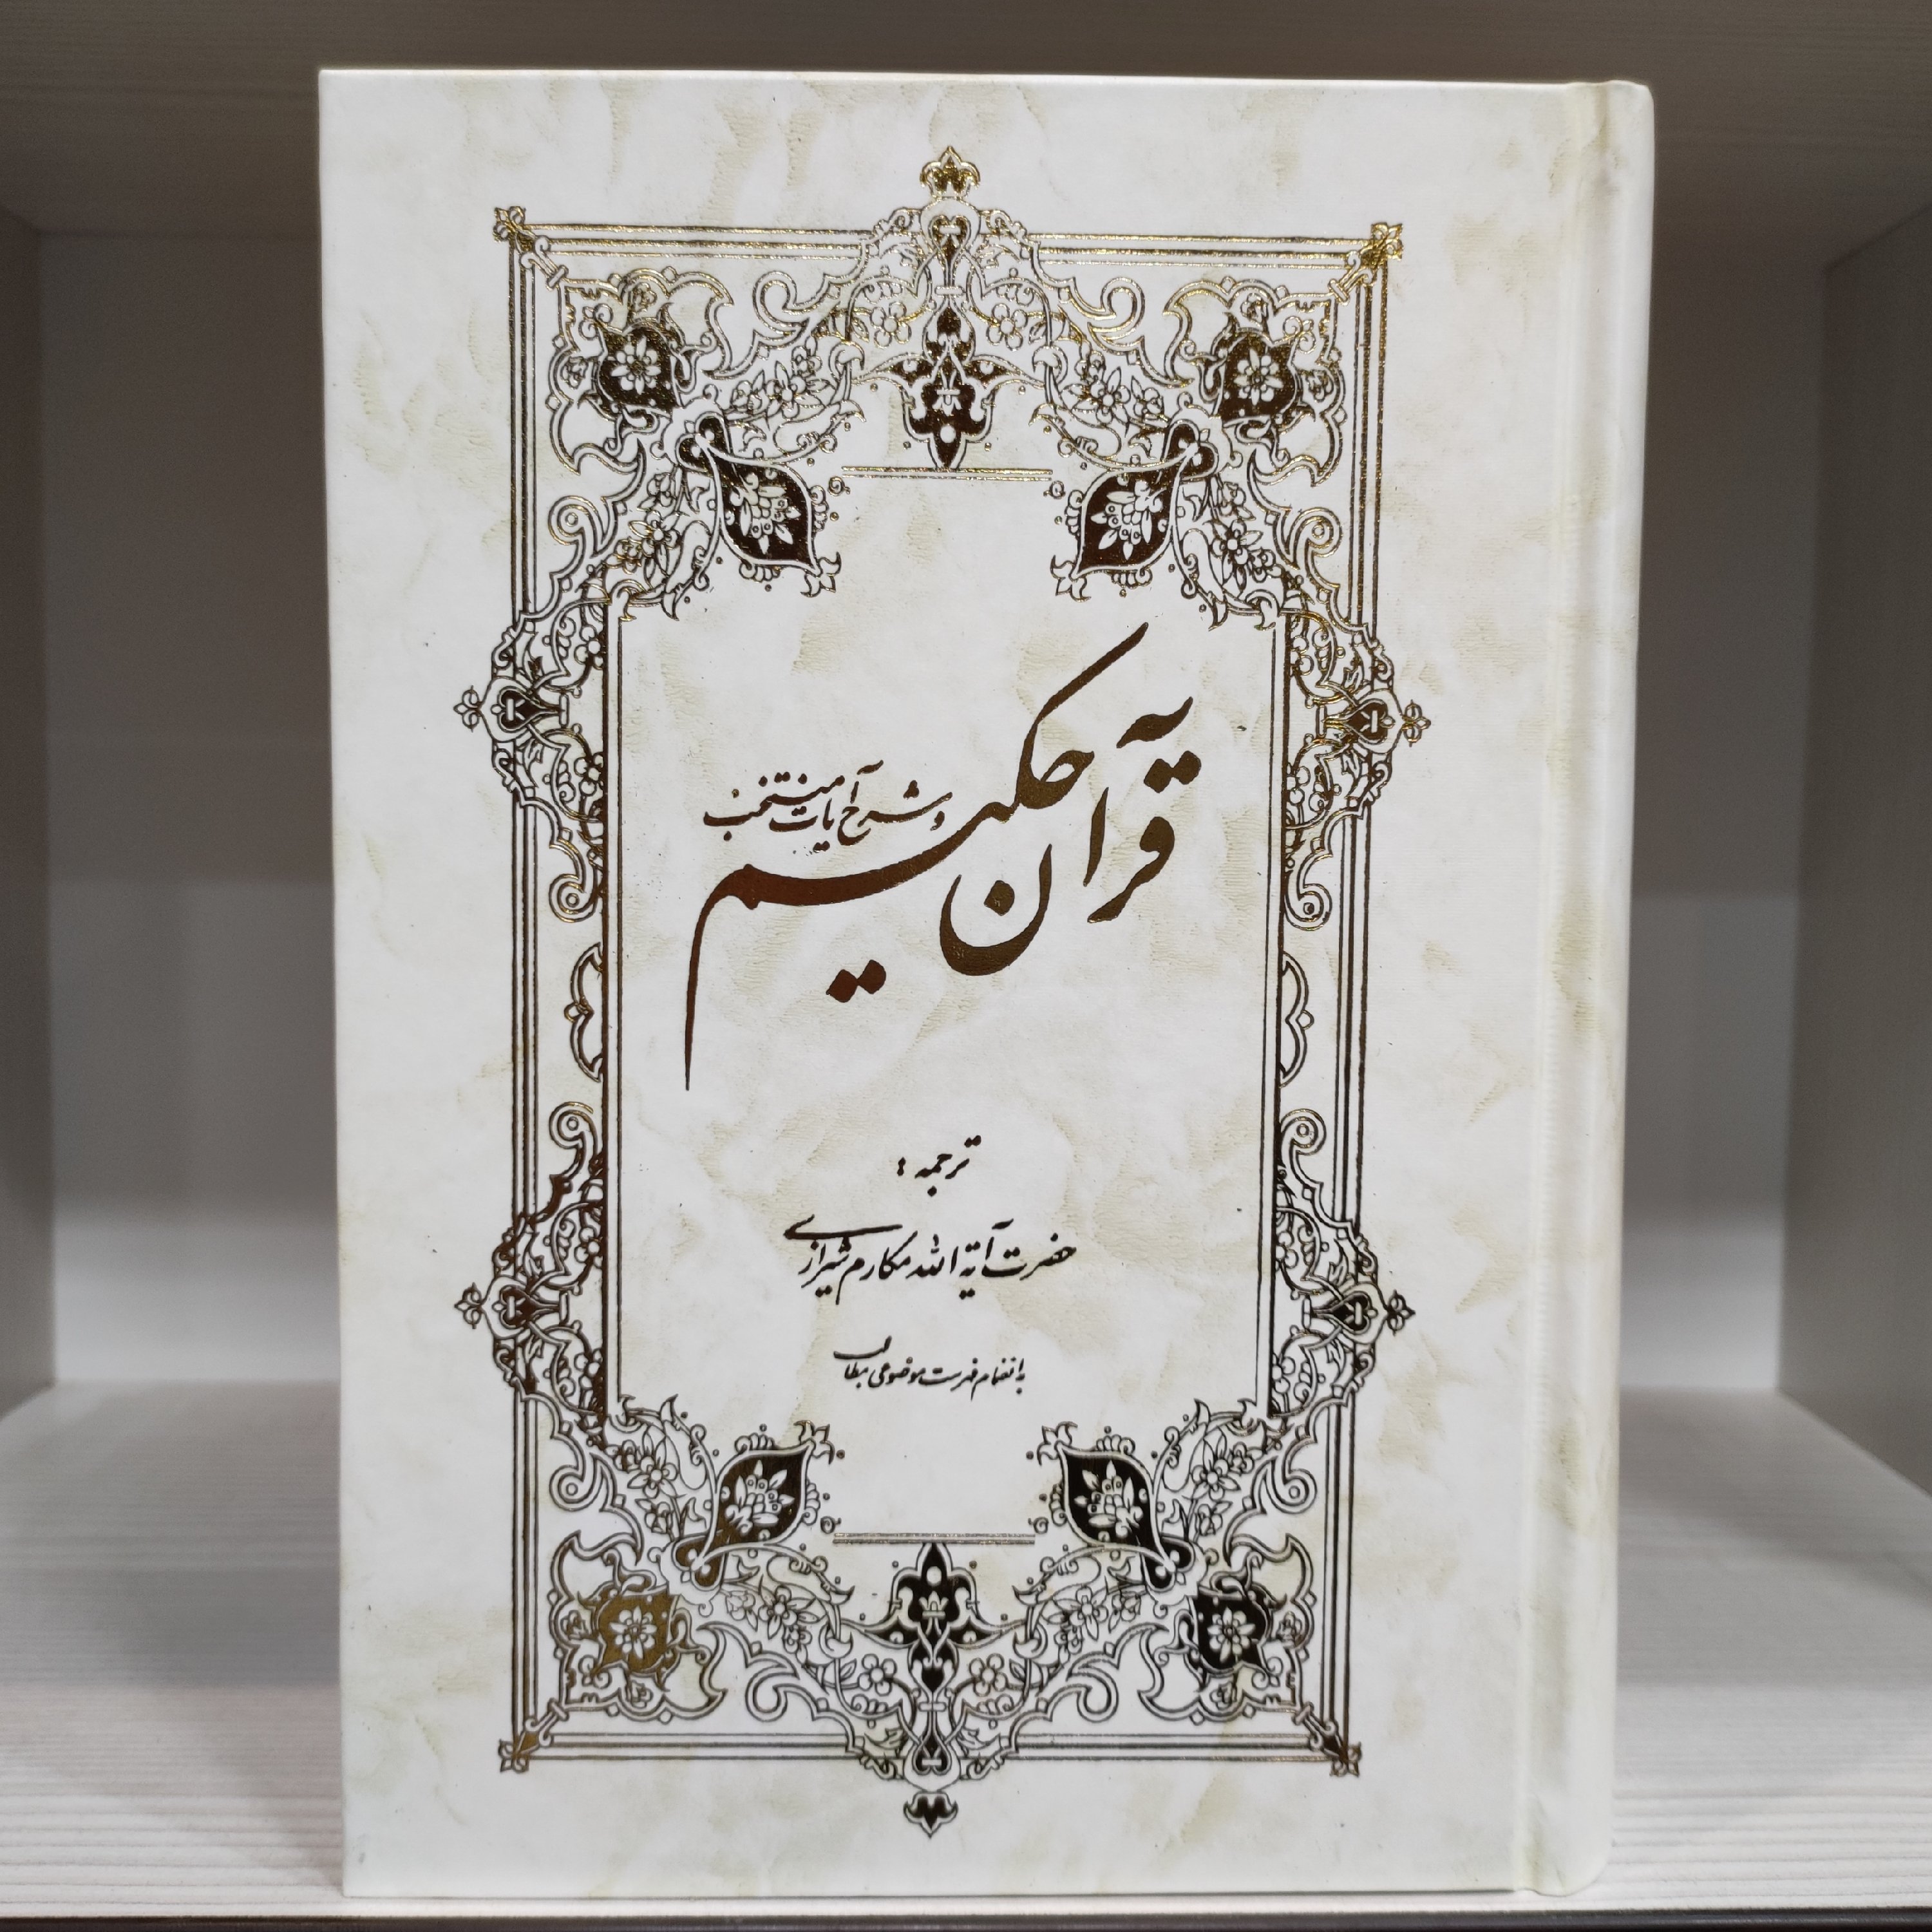 قرآن حکیم
و شرح آیات منتخب
ترجمه :
حضرت آیة الله مکارم شیرازی
به انضمام فهرست موضوعی مطالب